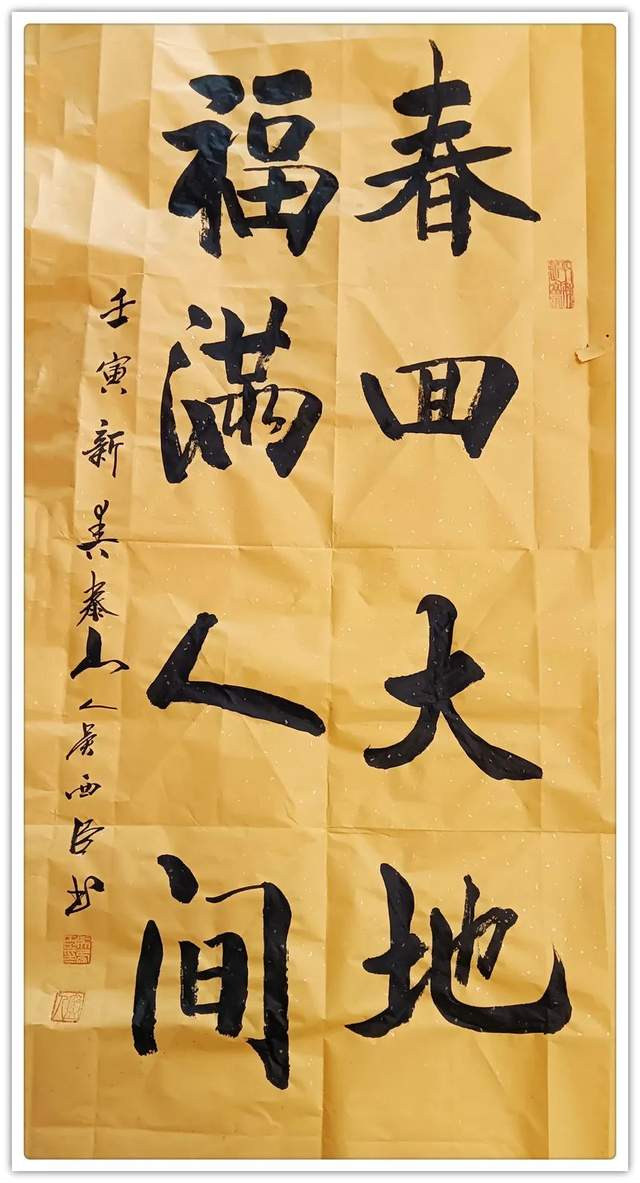 春回大地
福满人间
壬寅新 泰山人吴西臣书